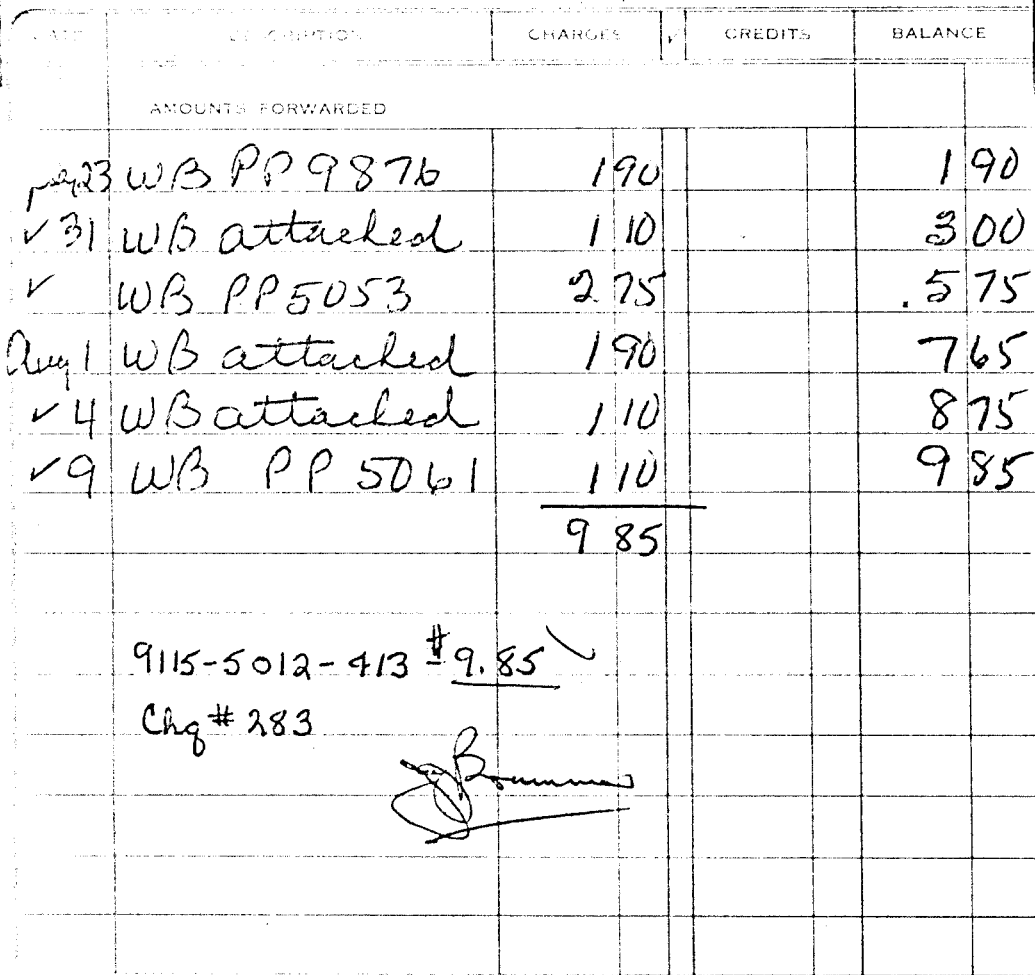 DATE DESCRIPTION CHARGES ✓ CREDITS BALANCE
AMOUNTS FORWARDED
23 WB PP 9876 1 90 1 90
✓ 31 WB attached 1 10 3 00
✓ WB PP 5053 2 75 .5 75
Aug 1 WB attached 1 90 7 65
✓ 4 WB attached 1 10 8 75
✓ 9 WB PP 5061 1 10 9 85
9 85
9115-5012-413 # 9.85
Chq # 283